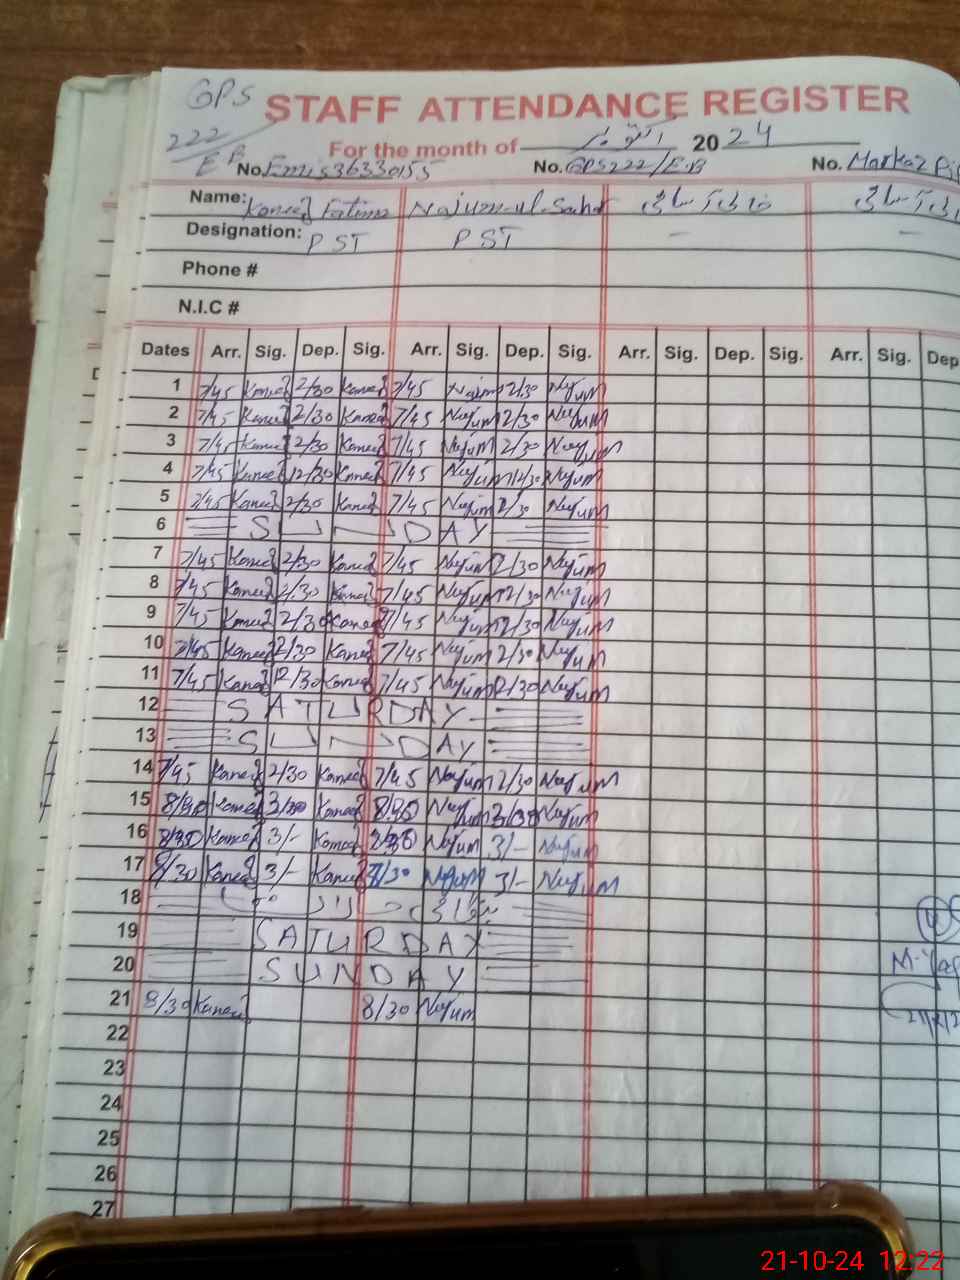 GPS STAFF ATTENDANCE REGISTER
222/EB For the month of اکتوبر 2024
No. Emis 36330155 No. GPS 222/E.B No. Markaz
Name: Kaneez Fatima Najum-ul-Sahar خالی آسامی خالی آسامی
Designation: PST PST — —
Phone #
N.I.C #
Dates Arr. Sig. Dep. Sig. Arr. Sig. Dep. Sig. Arr. Sig. Dep. Sig. Arr. Sig. Dep
1 7/45 Kaneez 2/30 Kaneez 7/45 Najum 2/30 Najum
2 7/45 Kaneez 2/30 Kaneez 7/45 Najum 2/30 Najum
3 7/45 Kaneez 2/30 Kaneez 7/45 Najum 2/30 Najum
4 7/45 Kaneez 12/30 Kaneez 7/45 Najum 12/30 Najum
5 7/45 Kaneez 2/30 Kaneez 7/45 Najum 2/30 Najum
6 SUNDAY
7 7/45 Kaneez 2/30 Kaneez 7/45 Najum 2/30 Najum
8 7/45 Kaneez 2/30 Kaneez 7/45 Najum 2/30 Najum
9 7/45 Kaneez 2/30 Kaneez 7/45 Najum 2/30 Najum
10 7/45 Kaneez 2/30 Kaneez 7/45 Najum 2/30 Najum
11 7/45 Kaneez 12/30 Kaneez 7/45 Najum 12/30 Najum
12 SATURDAY
13 SUNDAY
14 7/45 Kaneez 2/30 Kaneez 7/45 Najum 2/30 Najum
15 8/30 Kaneez 3/30 Kaneez 8/30 Najum 3/30 Najum
16 8/30 Kaneez 3/- Kaneez 8/30 Najum 3/- Najum
17 8/30 Kaneez 3/- Kaneez 8/30 Najum 3/- Najum
18
19 SATURDAY
20 SUNDAY
21 8/30 Kaneez 8/30 Najum
22
23
24
25
26
27
21-10-24 12:22